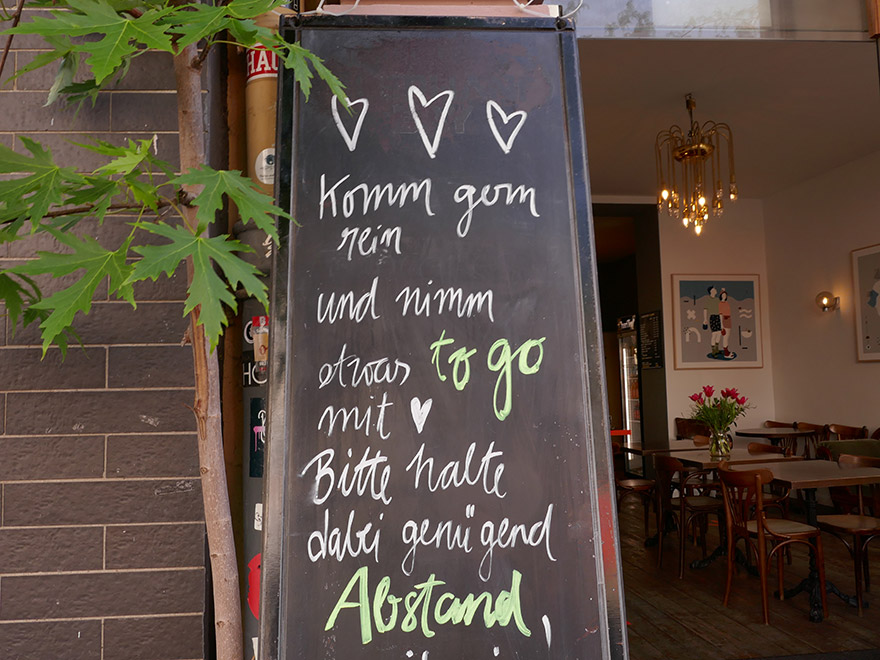 Komm gern
rein
und nimm
etwas to go
mit
Bitte halte
dabei genügend
Abstand,
HAL